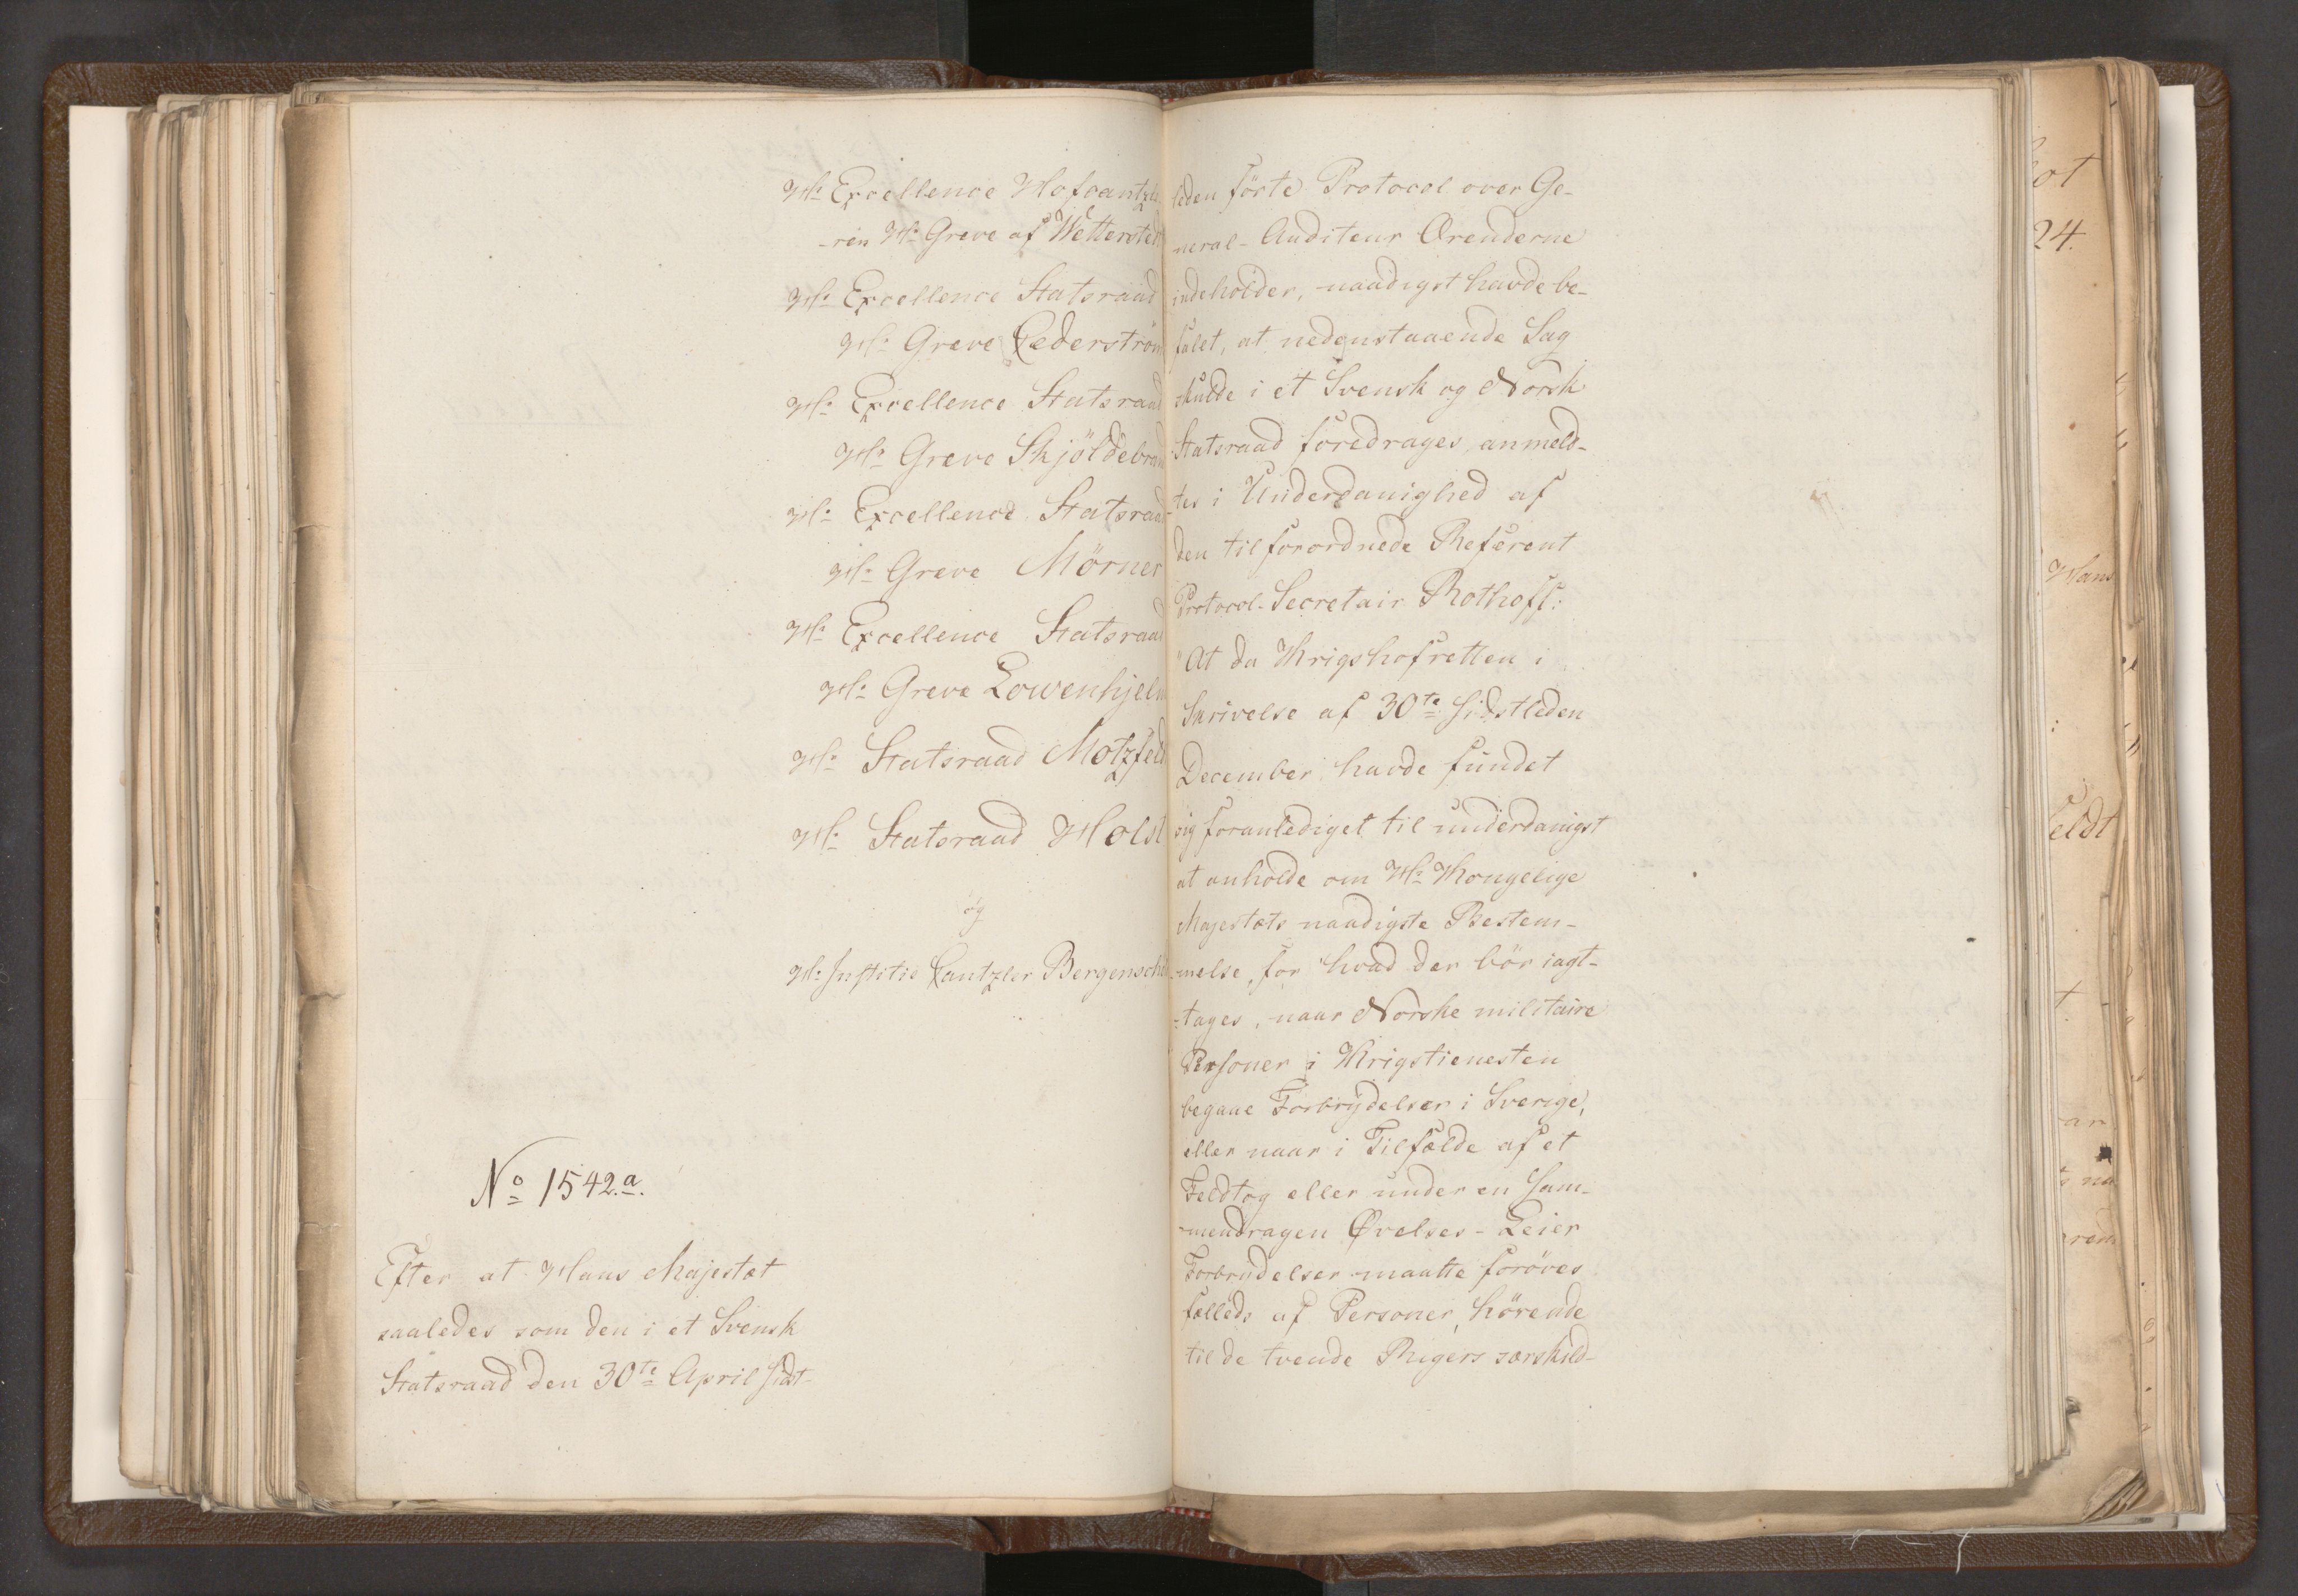 Hr Excellence Hofcantzle
-ren Hr Greve af Wettersted
Hr Excellence Statsraad
Hr Greve Cederström
Hr Excellence Statsraad
Hr Greve Skjöldebrand
Hr Excellence Statsraad
Hr Greve Mörner
Hr Excellence Statsraad
Hr Greve Lowenhjelm
Hr Statsraad Motzfeld
Hr Statsraad Holst
og
Hr Justitie Cantzler Bergenschi
No 1542.a.
Efter at Hans Majestæt
saaledes som den i et Svensk
Statsraad den 30te April sidst-
leden förte Protocol over Ge-
neral-Auditeur Ærenderne
indeholder, naadigst havde be-
falet, at nedenstaaende Sag
skulde i et Svensk og Norsk
Statsraad foredrages, anmeld-
-tes i Underdanighed af
den tilforordnede Referent
Protocol-Secretair Rothoff:
"At da Krigshofretten i
Skrivelse af 30te sidstleden
December havde fundet
sig foranlediget til underdanigst
at anholde om Hs Kongelige
Majestæts naadigste Bestem-
-melse, for hvad der bör iagt-
-tages, naar Norske militaire
Personer i Krigstienesten
begaae Forbrydelser i Sverige,
eller naar i Tilfælde af et
Feldtog eller under en sam-
-mendragen Øvelses-Leier
Forbrydelser maatte foröves
fælleds af Personer, hörende
til de tvende Rigers særskild-
ot
24.
Hans
eldt
ar
na